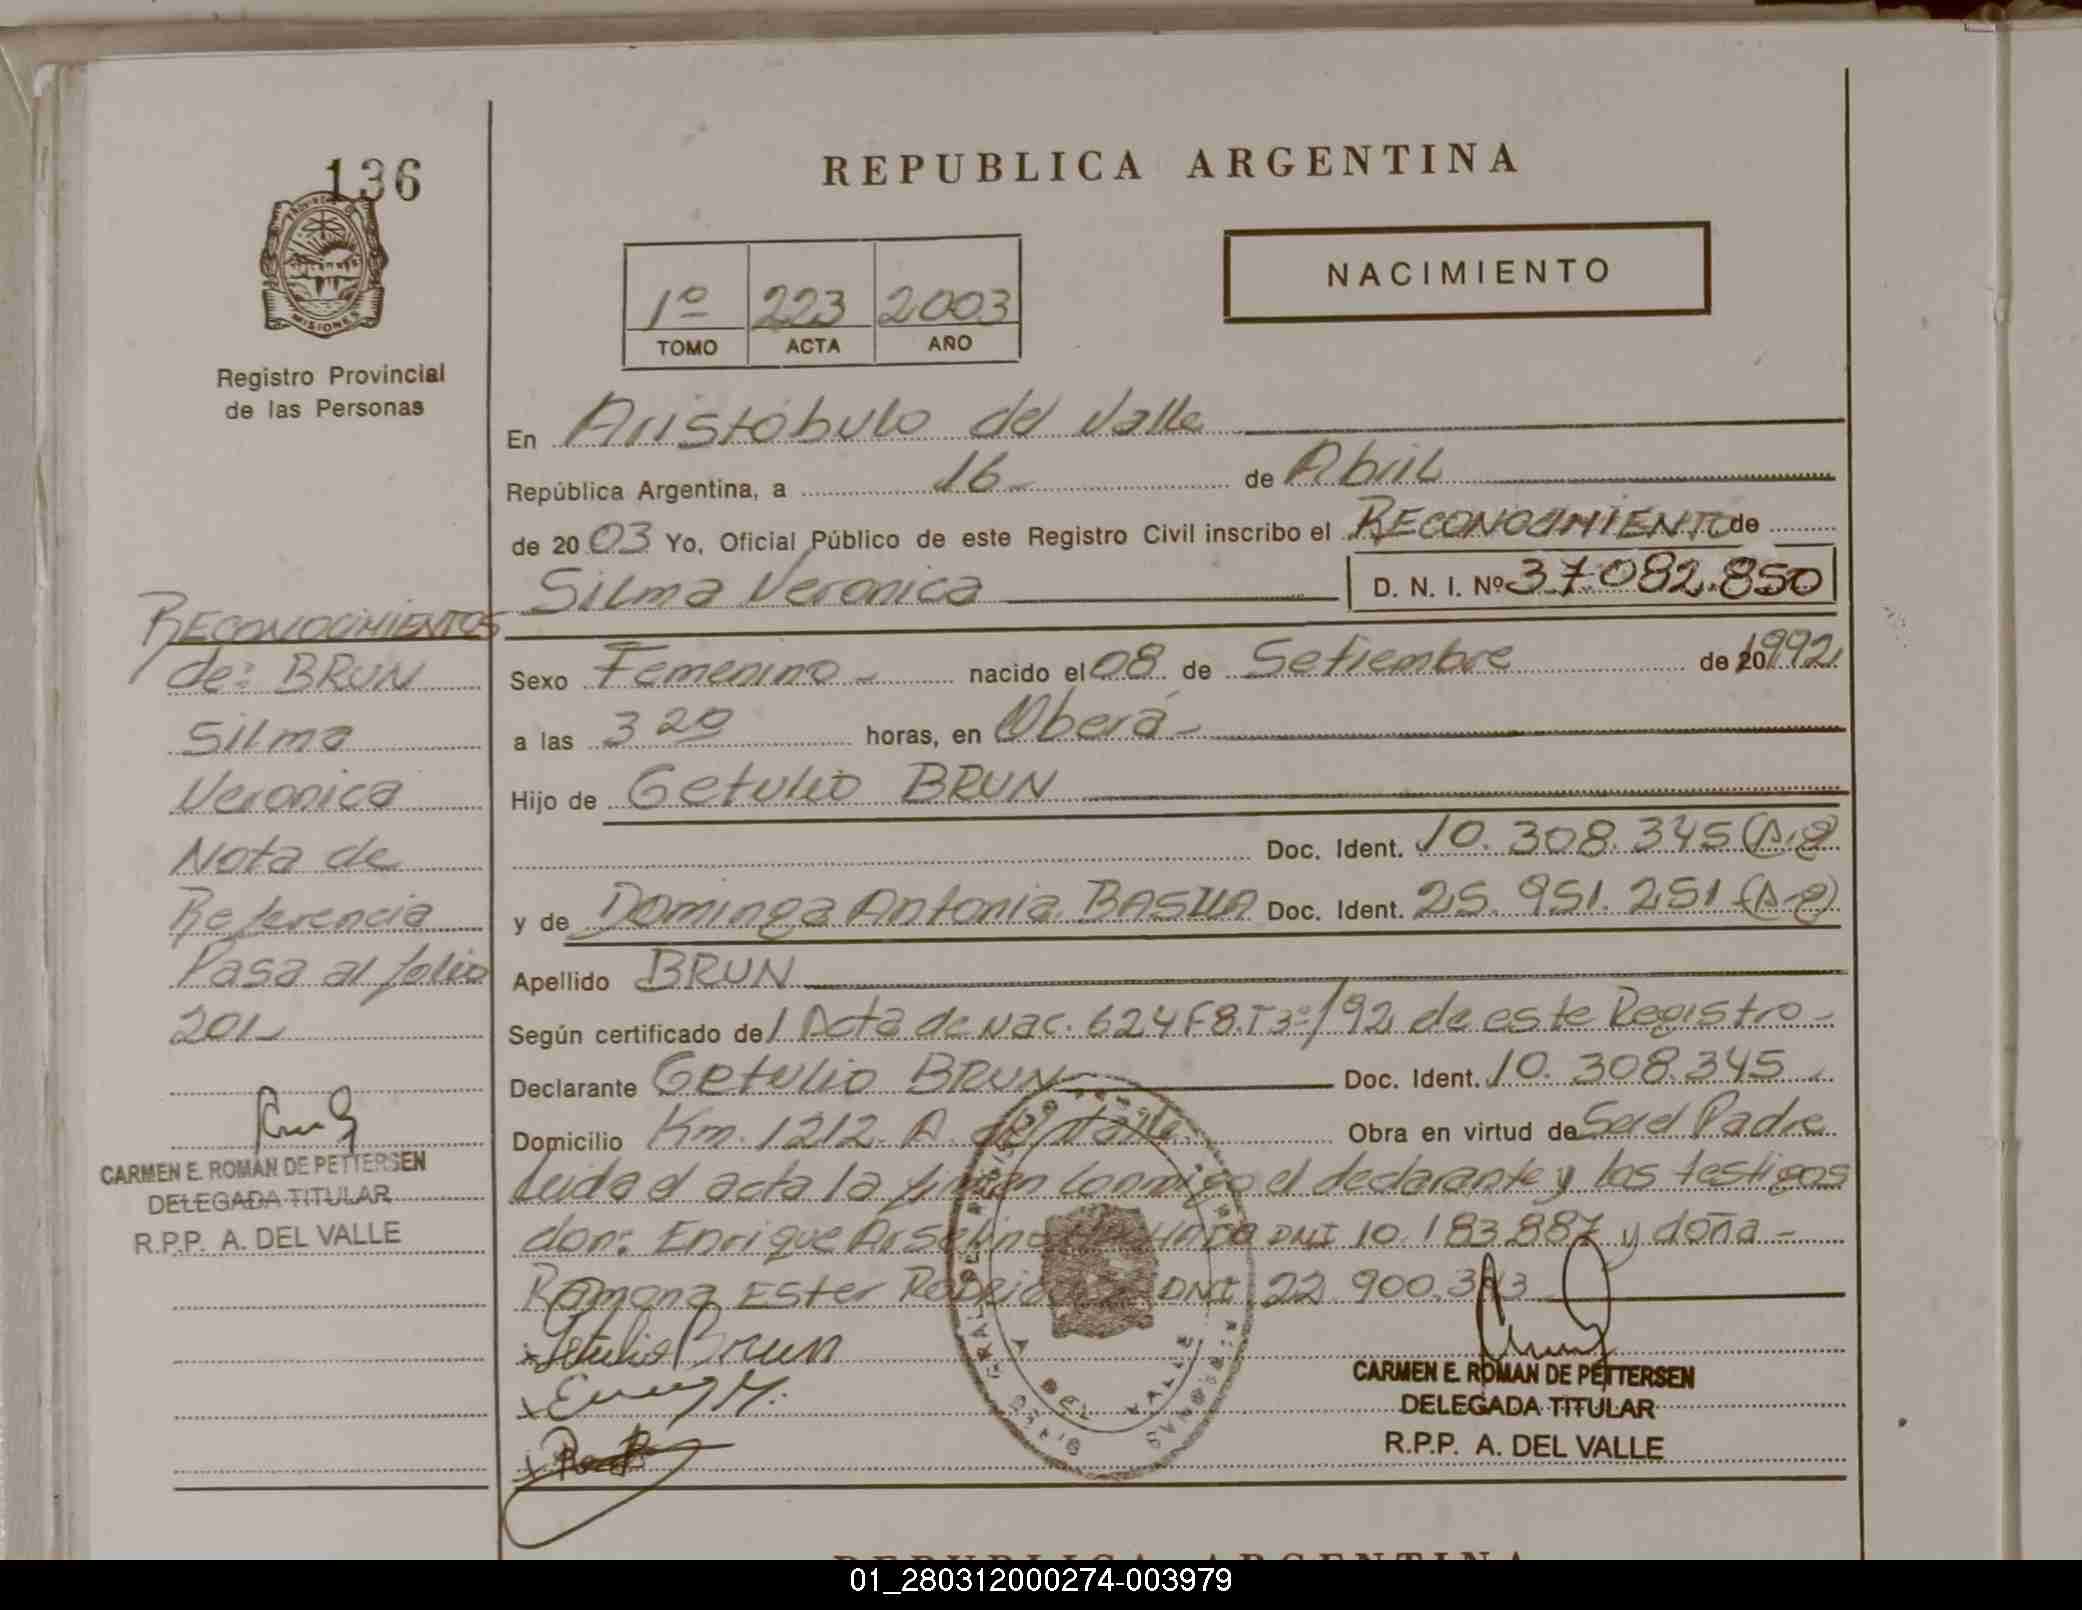 136
PROVINCIA DE
MISIONES
Registro Provincial
de las Personas
REPUBLICA ARGENTINA
1º 223 2003
TOMO ACTA AÑO
NACIMIENTO
En Aristóbulo del Valle
República Argentina, a 16 de Abril
de 2003 Yo, Oficial Público de este Registro Civil inscribo el RECONOCIMIENTO de
Silma Veronica D. N. I. Nº 37.082.850
Sexo Femenino nacido el 08 de Setiembre de 20 1992
a las 3 20 horas, en Oberá
Hijo de Getulio BRUN
Doc. Ident. 10.308.345
y de Dominga Antonia Doc. Ident. 25.951.251
Apellido BRUN
Según certificado de Acta de Nac. 624 F8.T3º/92 de este Registro
Declarante Getulio BRUN Doc. Ident. 10.308.345
Domicilio Km. 1212. A. del Valle Obra en virtud de Ser el Padre
Leida el acta la firman conmigo el declarante y los testigos
don: Enrique DNI 10.183.887 y doña
Ramona Ester DNI 22.900.
Getulio Brun
CARMEN E. ROMAN DE PETTERSEN
DELEGADA TITULAR
R.P.P. A. DEL VALLE
RECONOCIMIENTOS
de: BRUN
Silma
Veronica
Nota de
Referencia
Pasa al folio
201
CARMEN E. ROMAN DE PETTERSEN
DELEGADA TITULAR
R.P.P. A. DEL VALLE
REPUBLICA ARGENTINA
01_280312000274-003979